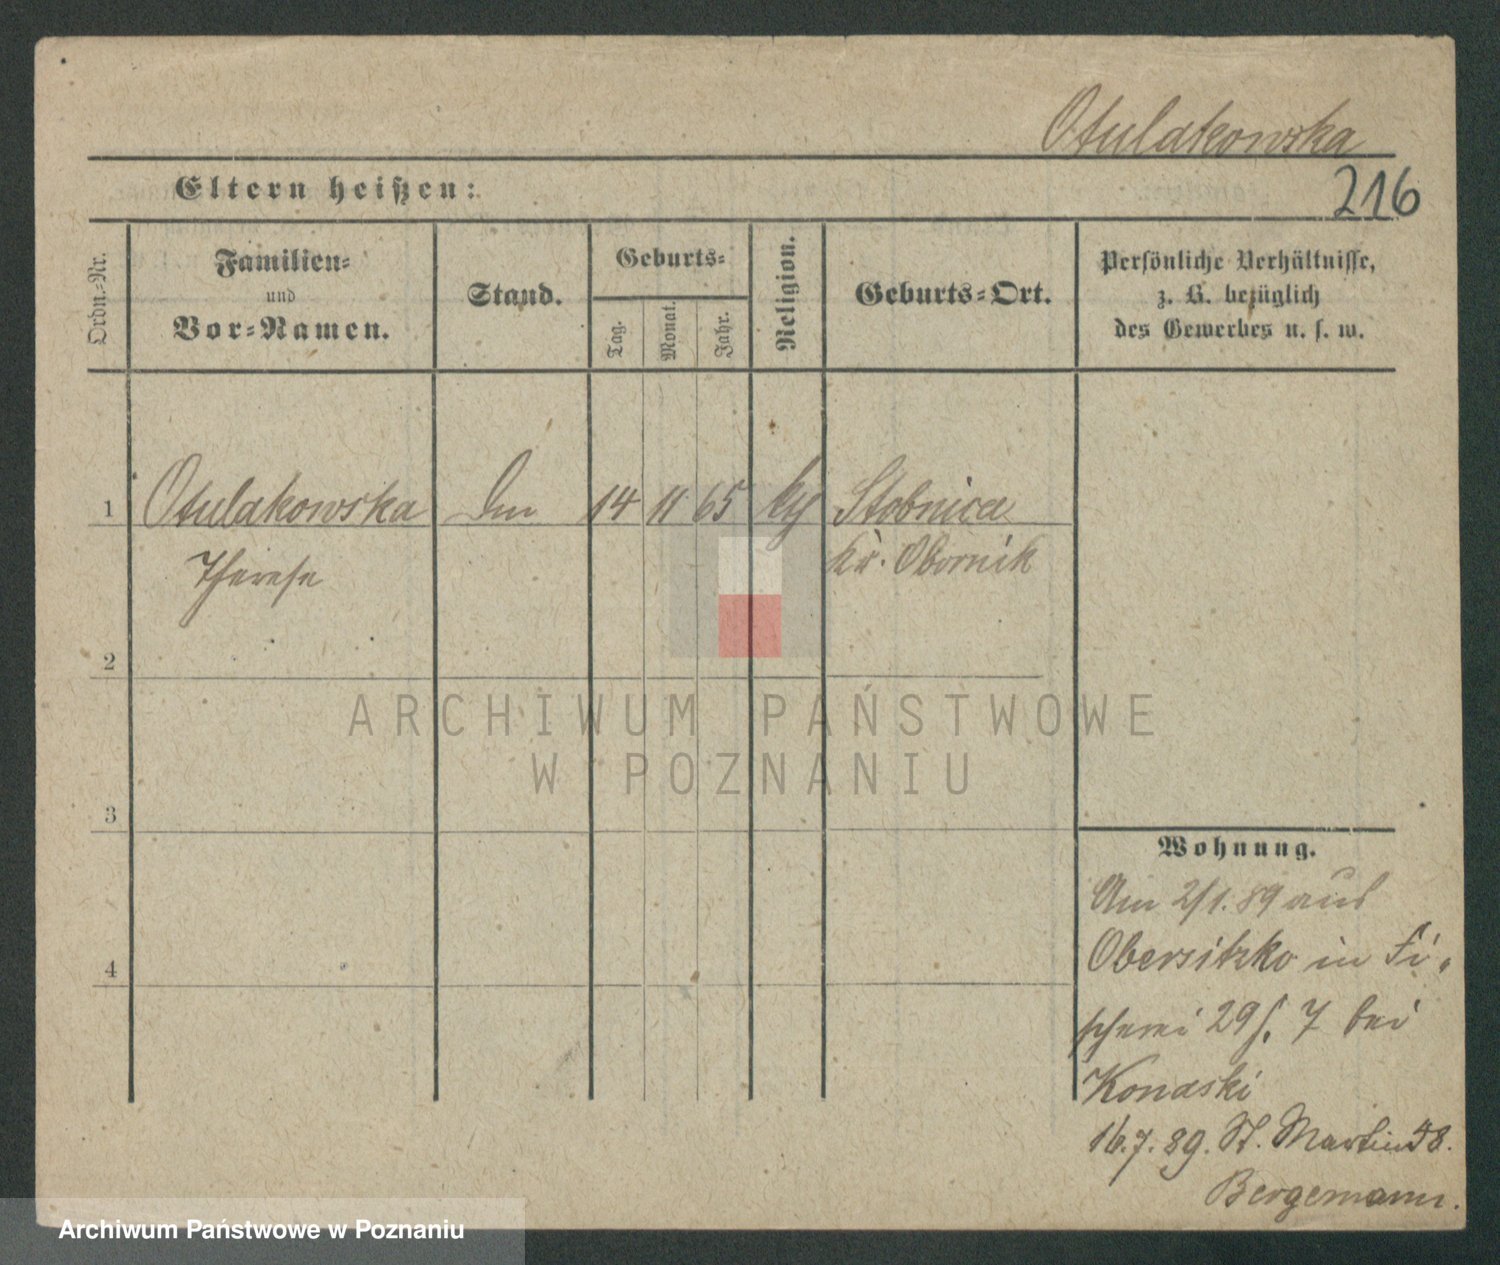 Otulakowska
Eltern heißen:
216
Ordn.-Nr.
Familien-
und
Vor-Namen.
Stand.
Geburts-
Tag.
Monat.
Jahr.
Religion.
Geburts-Ort.
Persönliche Verhältnisse,
z. B. bezüglich
des Gewerbes u. s. w.
1 Otulakowska 14 11 65 Stobnica
Therese Kr. Obornik
2
3
4
Wohnung.
Am 2/1. 89 aus
Obersitzko in Fi-
scherei 29 7 bei
Konaski
16.7.89. St. Martin 58.
Bergemann.
ARCHIWUM PAŃSTWOWE
W POZNANIU
Archiwum Państwowe w Poznaniu